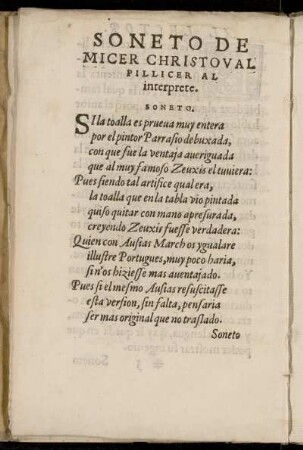 SONETO DE
MICER CHRISTOVAL
PILLICER AL
interprete.
SONETO.
SI la toalla es prueua muy entera
por el pintor Parrasio debuxada,
con que fue la ventaja aueriguada
que al muy famoso Zeuxis el tuuiera:
Pues siendo tal artifice qual era,
la toalla que en la tabla vio pintada
quiso quitar con mano apresurada,
creyendo Zeuxis fuesse verdadera:
Quien con Ausias March os ygualare
illustre Portugues, muy poco haria,
si n'os hiziesse mas auentajado.
Pues si el mesmo Ausias resuscitasse
esta version, sin falta, pensaria
ser mas original que no traslado.
Soneto